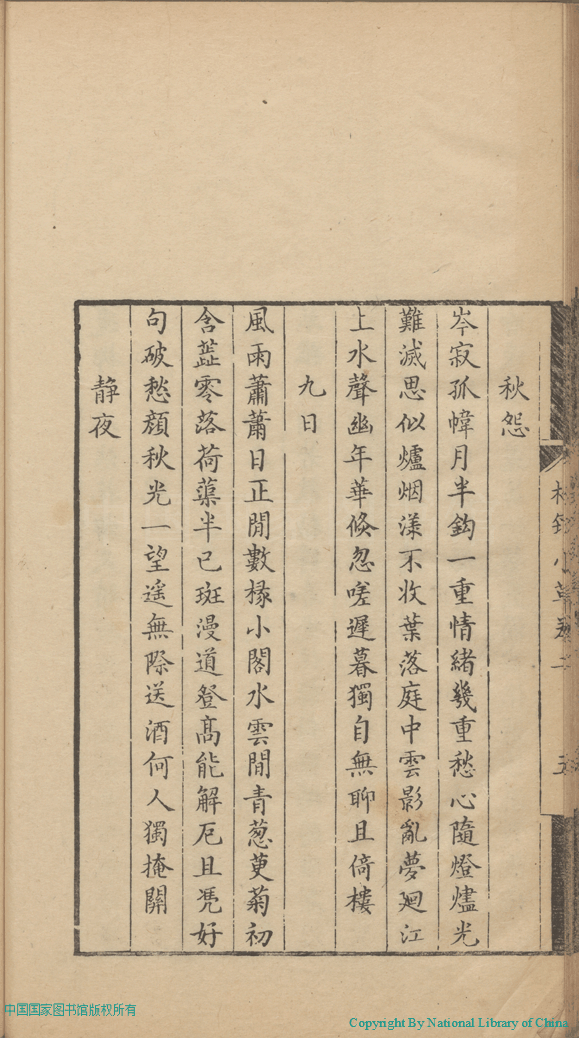 秋怨
岑寂孤幃月半鈎一重情緒幾重愁心隨燈燼光
難滅思似爐烟漾不收葉落庭中雲影亂夢廻江
上水聲幽年華倏忽嗟遲暮獨自無聊且倚樓
九日
風雨蕭蕭日正閒數椽小閣水雲間青葱萸菊初
含蘂零落荷蕖半已斑漫道登高能解厄且凭好
句破愁顔秋光一望遥無際送酒何人獨掩關
靜夜
中国国家图书馆版权所有
Copyright By National Library of China